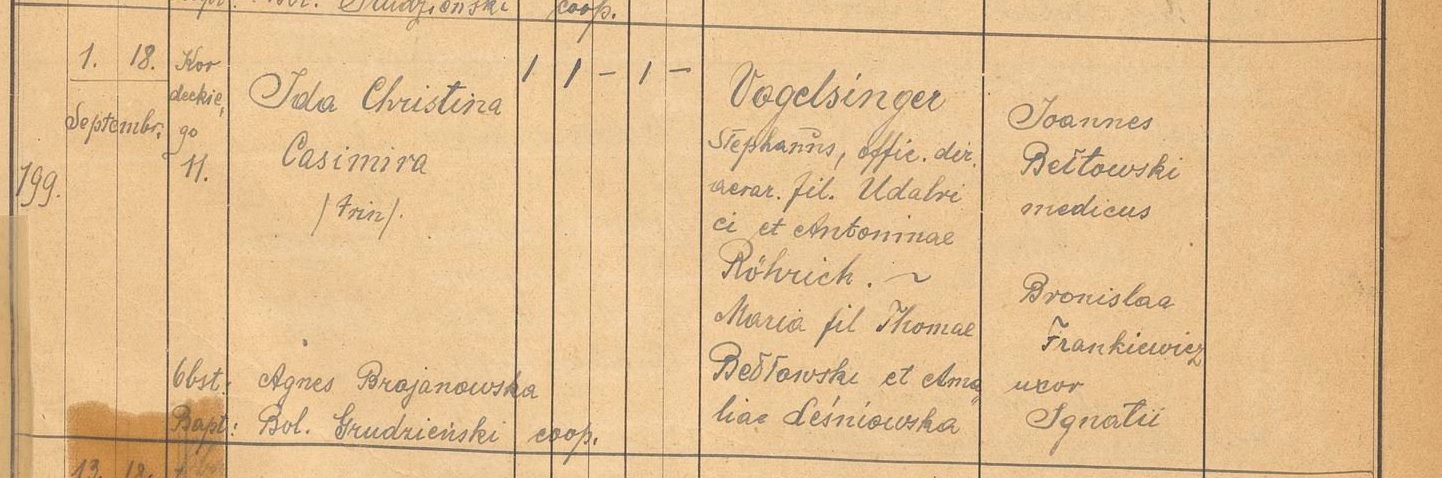 Grudzieński coop.
199.
1. 18.
Septembr.
Kor
deckie,
go
11.
Ida Christina
Casimira
/trin/.
1 1 – 1 –
Vogelsinger
Stephanus, offic. dir.
aerar. fil. Udalri
ci et Antoninae
Röhrich. ~
Maria fil Thomae
Bełtowski et Ama
liae Leśniowska
Joannes
Bełtowski
medicus
Bronislaa
Frankiewicz
uxor
Ignatii
Obst: Agnes Brojanowska
Bapt: Bol. Grudzieński coop.
13. 18.